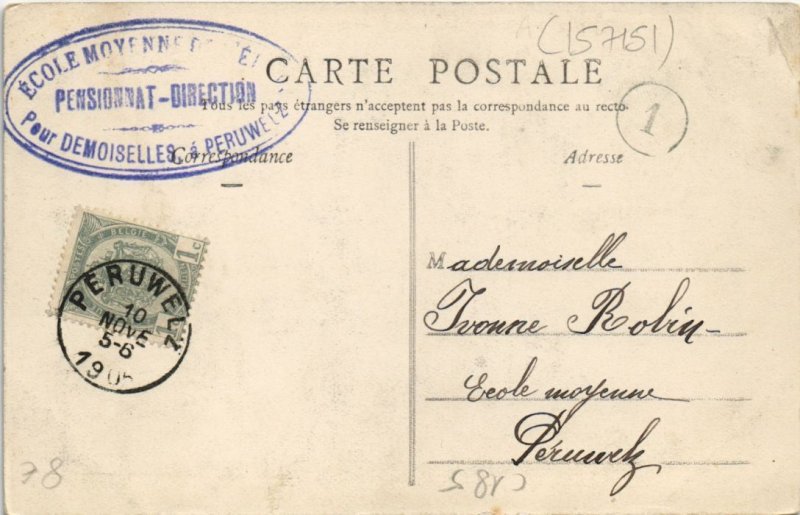 (157151)
ÉCOLE MOYENNE DE
PENSIONNAT-DIRECTION
Pour DEMOISELLES à PERUWELZ
CARTE POSTALE
Tous les pays étrangers n'acceptent pas la correspondance au recto.
Se renseigner à la Poste.
1
Correspondance
Adresse
1c
BELGIE
PERUWELZ
10
NOVE
5-6
190
Mademoiselle
Yvonne Robin-
Ecole moyenne
Péruwelz
78